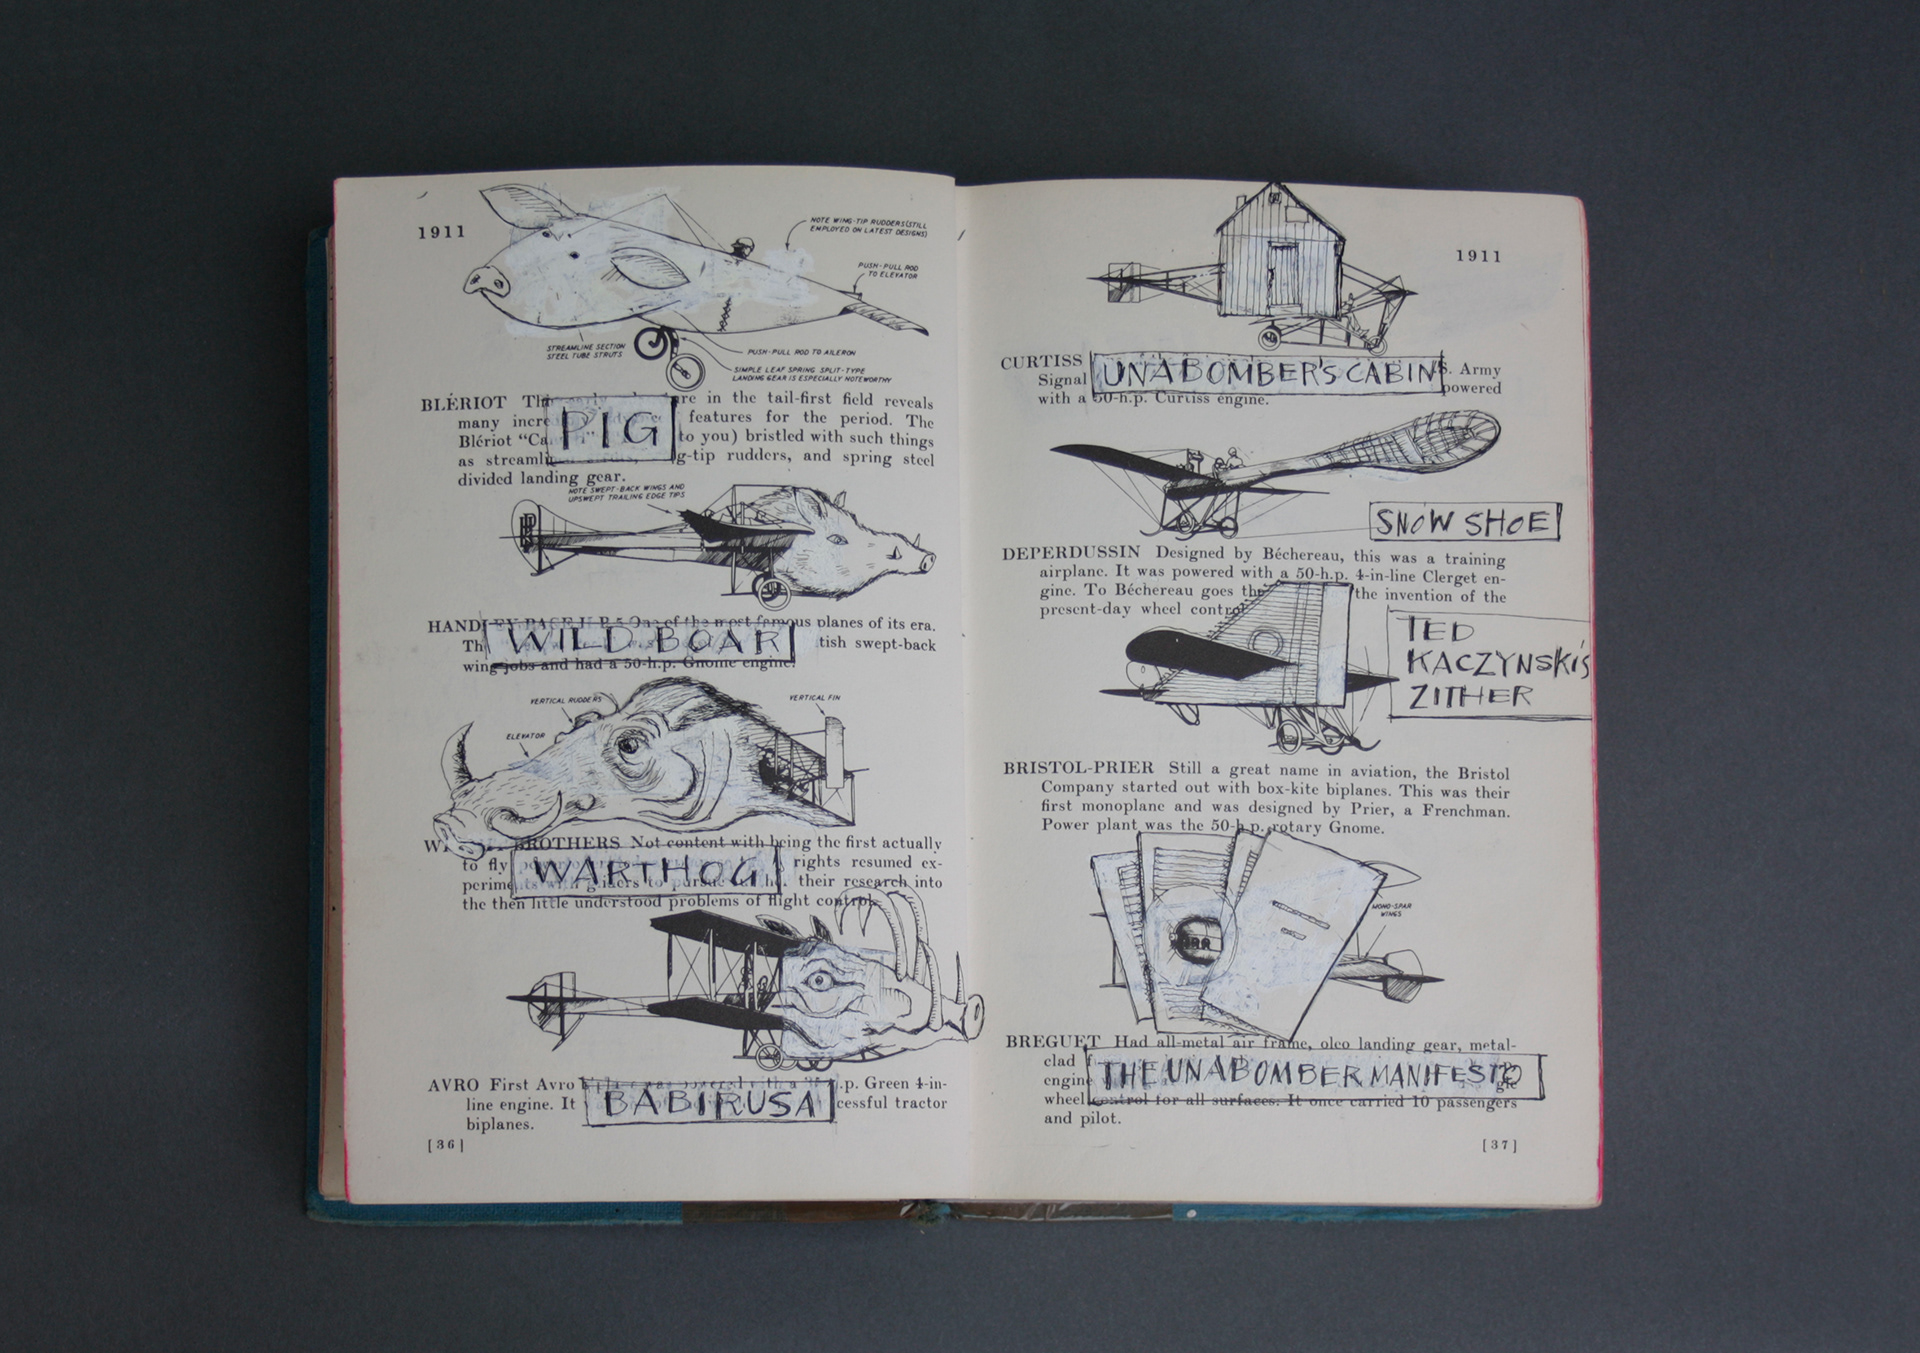 1911
NOTE WING-TIP RUDDERS (STILL
EMPLOYED ON LATEST DESIGNS)
PUSH-PULL ROD
TO ELEVATOR
STREAMLINE SECTION
STEEL TUBE STRUTS
PUSH-PULL ROD TO AILERON
SIMPLE LEAF SPRING SPLIT-TYPE
LANDING GEAR IS ESPECIALLY NOTEWORTHY
BLÉRIOT in the tail-first field reveals
many features for the period. The
Blériot to you) bristled with such things
as rudders, and spring steel
divided landing gear.
PIG
NOTE SWEPT-BACK WINGS AND
UPSWEPT TRAILING EDGE TIPS
HANDLEY PAGE H.P.5 One of the most famous planes of its era.
swept-back
wing jobs and had a 50-h.p. Gnome engine.
WILD BOAR
VERTICAL RUDDERS
VERTICAL FIN
ELEVATOR
BROTHERS Not content with being the first actually
to fly resumed ex-
their research into
the then little understood problems of flight control.
WARTHOG
AVRO First Avro h.p. Green 4-in-
line engine. It tractor
biplanes.
BABIRUSA
[36]
1911
CURTISS Army
Signal powered
with a 50-h.p. Curtiss engine.
UNABOMBER'S CABIN
SNOW SHOE
DEPERDUSSIN Designed by Béchereau, this was a training
airplane. It was powered with a 50-h.p. 4-in-line Clerget en-
gine. To Béchereau goes the invention of the
present-day wheel control
TED
KACZYNSKI'S
ZITHER
BRISTOL-PRIER Still a great name in aviation, the Bristol
Company started out with box-kite biplanes. This was their
first monoplane and was designed by Prier, a Frenchman.
Power plant was the 50-h.p. rotary Gnome.
MONO-SPAR
WINGS
BREGUET Had all-metal air frame, oleo landing gear, metal-
clad
engine
wheel control for all surfaces. It once carried 10 passengers
and pilot.
THE UNABOMBER MANIFESTO
[37]